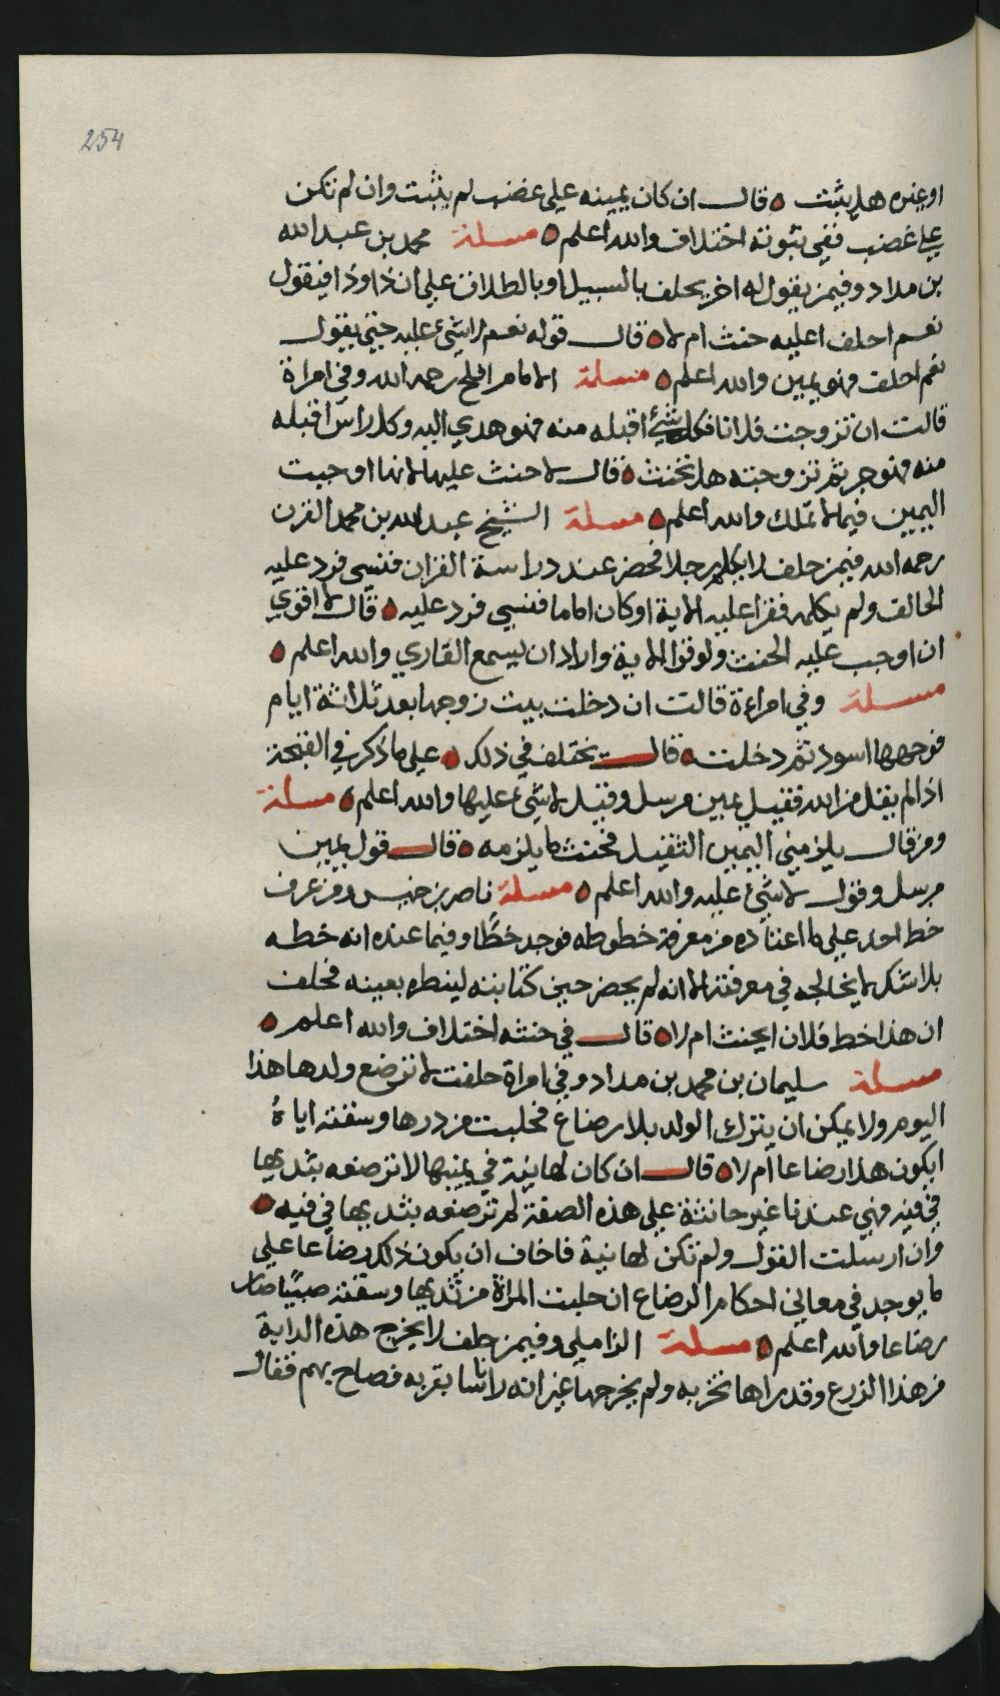 254
او عنره هل يثبت ٥ قال ان كان يمينه على غضب لم يثبت وان لم تكن
على غضب ففي ثبوته اختلاف والله اعلم ٥ مسلة محمد بن عبد الله
بن مداد وفيمن يقول له اخر يحلف بالسبيل او بالطلاق على ان ذا وذا فيقول
نعم احلف اعليه حنث ام لا ٥ قال قوله نعم لا شيء عليه حتى يقول
نعم احلف فهو يمين والله اعلم ٥ مسلة الامام افلح رحمه الله وفي امراة
قالت ان تزوجت فلانا فكل شيء اقبله منه فهو هدي اليه وكل راس اقبله
منه فهو حر ثم تزوجته هل تحنث ٥ قال لا حنث عليها لانها اوجبت
اليمين فيما لا تملك والله اعلم ٥ مسلة الشيخ عبد الله بن محمد القرن
رحمه الله فيمن حلف لا يكلم رجلا فحضر عند دراسة القران فنسي فرد عليه
الحالف ولم يكلمه فقرا عليه الاية او كان اماما فنسي فرد عليه ٥ قال لا اقوي
ان اوجب عليه الحنث ولو قرا الاية واراد ان يسمع القاري والله اعلم ٥
مسلة وفي امراءة قالت ان دخلت بيت زوجها بعد ثلاثة ايام
فوجهها اسود ثم دخلت ٥ قال يختلف في ذلك ٥ على ما ذكر في القبحة
اذا لم يقل من الله فقيل يمين مرسل وقيل لا شيء عليها والله اعلم ٥ مسلة
ومن قال يلزمني اليمين الثقيل فحنث ما يلزمه ٥ قال قول يمين
مرسل وقول لا شيء عليه والله اعلم ٥ مسلة ناصر بن خميس ومن عرف
خط احد على ما اعتاده من معرفة خطوطه فوجد خطًا وفيما عنده انه خطه
بلا شك لا يخالجه في معرفته الا انه لم يحضر حين كتابته لينظره بعينه فحلف
ان هذا خط فلان ايحنث ام لا ٥ قال في حنثه اختلاف والله اعلم ٥
مسلة سليمان بن محمد بن مداد وفي امراة حلفت لا ترضع ولدها هذا
اليوم ولا يمكن ان يترك الولد بلا رضاع فحلبت من درها وسقته اياهُ
ايكون هذا رضاعا ام لا ٥ قال ان كان لها نية في يمينها لا ترضعه بثديها
في فيه فهي عندنا غير حانثة على هذه الصفة لم ترضعه بثديها في فيه ٥
وان ارسلت القول ولم تكن لها نية فاخاف ان يكون ذلك رضاعا على
ما يوجد في معاني احكام الرضاع ان حلبت المراة من ثديها وسقته صبيًا صار
رضاعا والله اعلم ٥ مسلة الزاملي وفيمن حلف لا يخرج هذه الدابة
من هذا الزرع وقد راها تخربه ولم يخرجها غير انه را ناسا بقربه فصاح بهم فقال